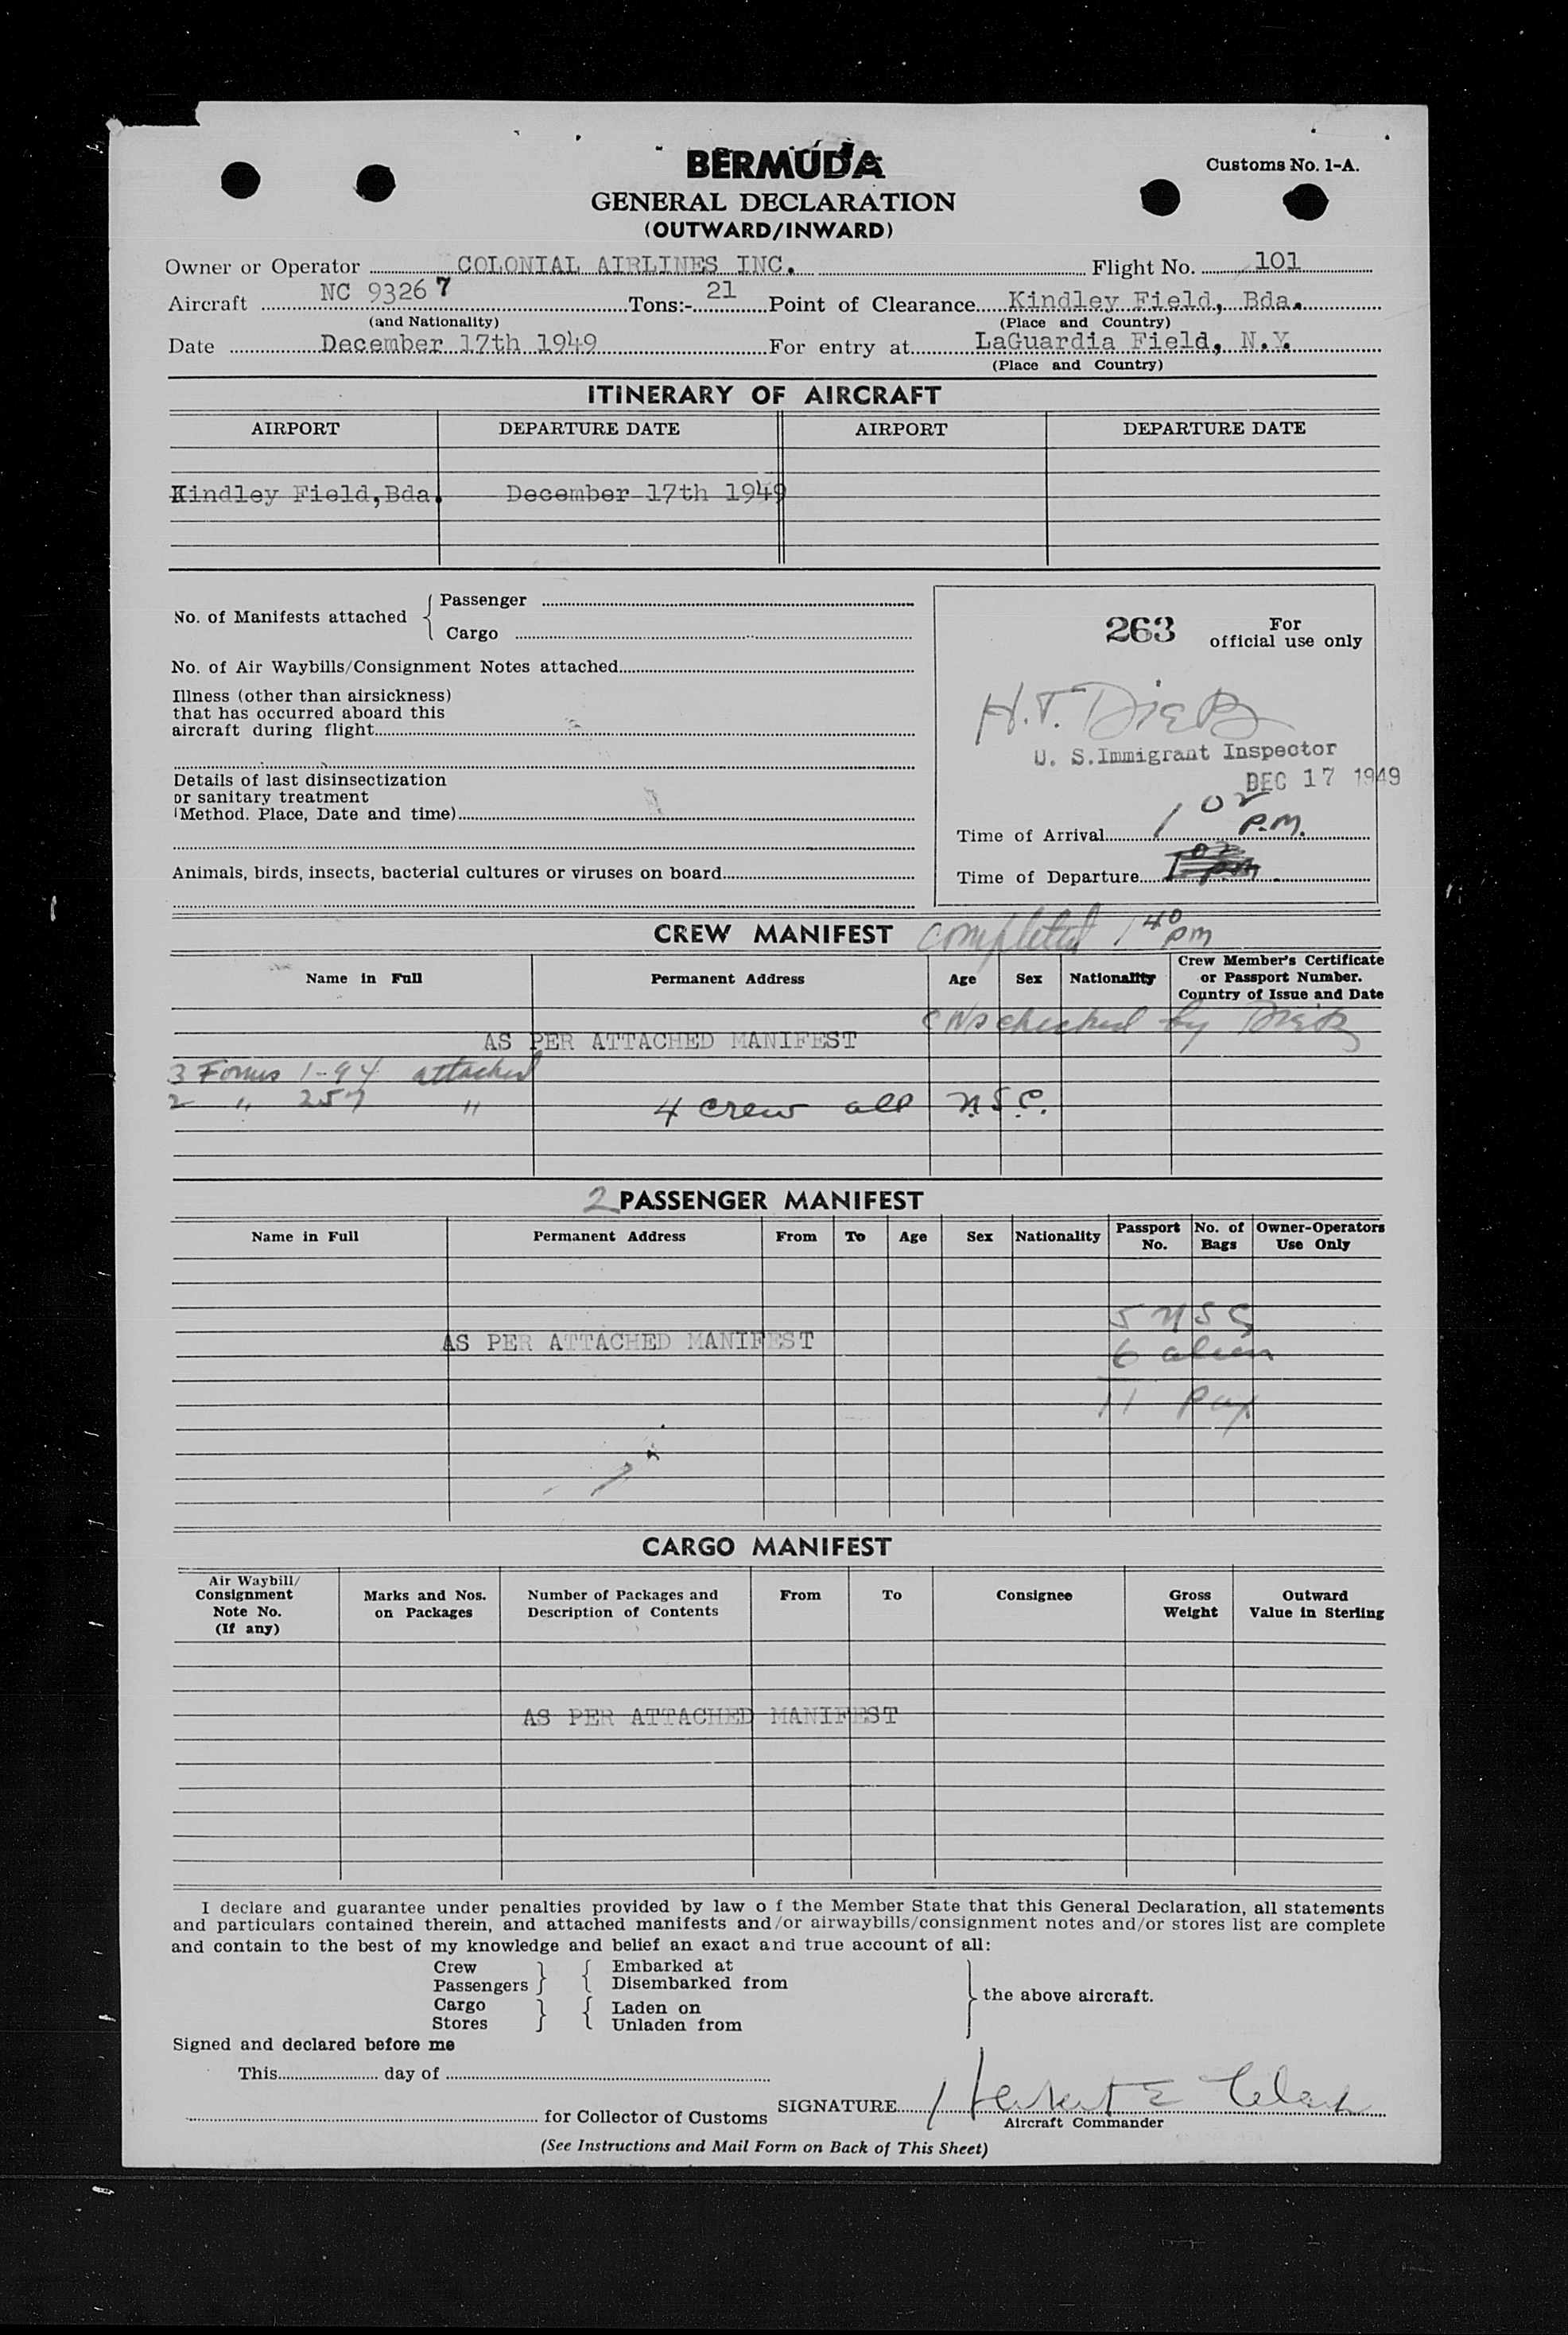 BERMUDA
Customs No. 1-A.
GENERAL DECLARATION
(OUTWARD/INWARD)
Owner or Operator COLONIAL AIRLINES INC. Flight No. 101
Aircraft NC 93267 Tons:- 21 Point of Clearance Kindley Field, Bda.
(and Nationality) (Place and Country)
Date December 17th 1949 For entry at LaGuardia Field, N.Y.
(Place and Country)
ITINERARY OF AIRCRAFT
AIRPORT DEPARTURE DATE AIRPORT DEPARTURE DATE
Kindley Field,Bda. December 17th 1949
No. of Manifests attached { Passenger
Cargo
No. of Air Waybills/Consignment Notes attached
Illness (other than airsickness)
that has occurred aboard this
aircraft during flight
Details of last disinsectization
or sanitary treatment
(Method. Place, Date and time)
Animals, birds, insects, bacterial cultures or viruses on board
263 For
official use only
H.T.
U. S.Immigrant Inspector
DEC 17 1949
Time of Arrival 1 02 P.M.
Time of Departure
CREW MANIFEST completed 1 40 pm
Name in Full Permanent Address Age Sex Nationality Crew Member's Certificate
or Passport Number.
Country of Issue and Date
checked by
AS PER ATTACHED MANIFEST
3 Forms 1-94 attached
2 " 257 " 4 crew all N.S.C.
2 PASSENGER MANIFEST
Name in Full Permanent Address From To Age Sex Nationality Passport
No. No. of
Bags Owner-Operators
Use Only
5 NSC
AS PER ATTACHED MANIFEST
6 alien
11 Pax
CARGO MANIFEST
Air Waybill/
Consignment
Note No.
(If any) Marks and Nos.
on Packages Number of Packages and
Description of Contents From To Consignee Gross
Weight Outward
Value in Sterling
AS PER ATTACHED MANIFEST
I declare and guarantee under penalties provided by law o f the Member State that this General Declaration, all statements
and particulars contained therein, and attached manifests and/or airwaybills/consignment notes and/or stores list are complete
and contain to the best of my knowledge and belief an exact and true account of all:
Crew } { Embarked at
Passengers } { Disembarked from
} the above aircraft.
Cargo } { Laden on
Stores } { Unladen from
Signed and declared before me
This day of
SIGNATURE Herbert E
for Collector of Customs
Aircraft Commander
(See Instructions and Mail Form on Back of This Sheet)